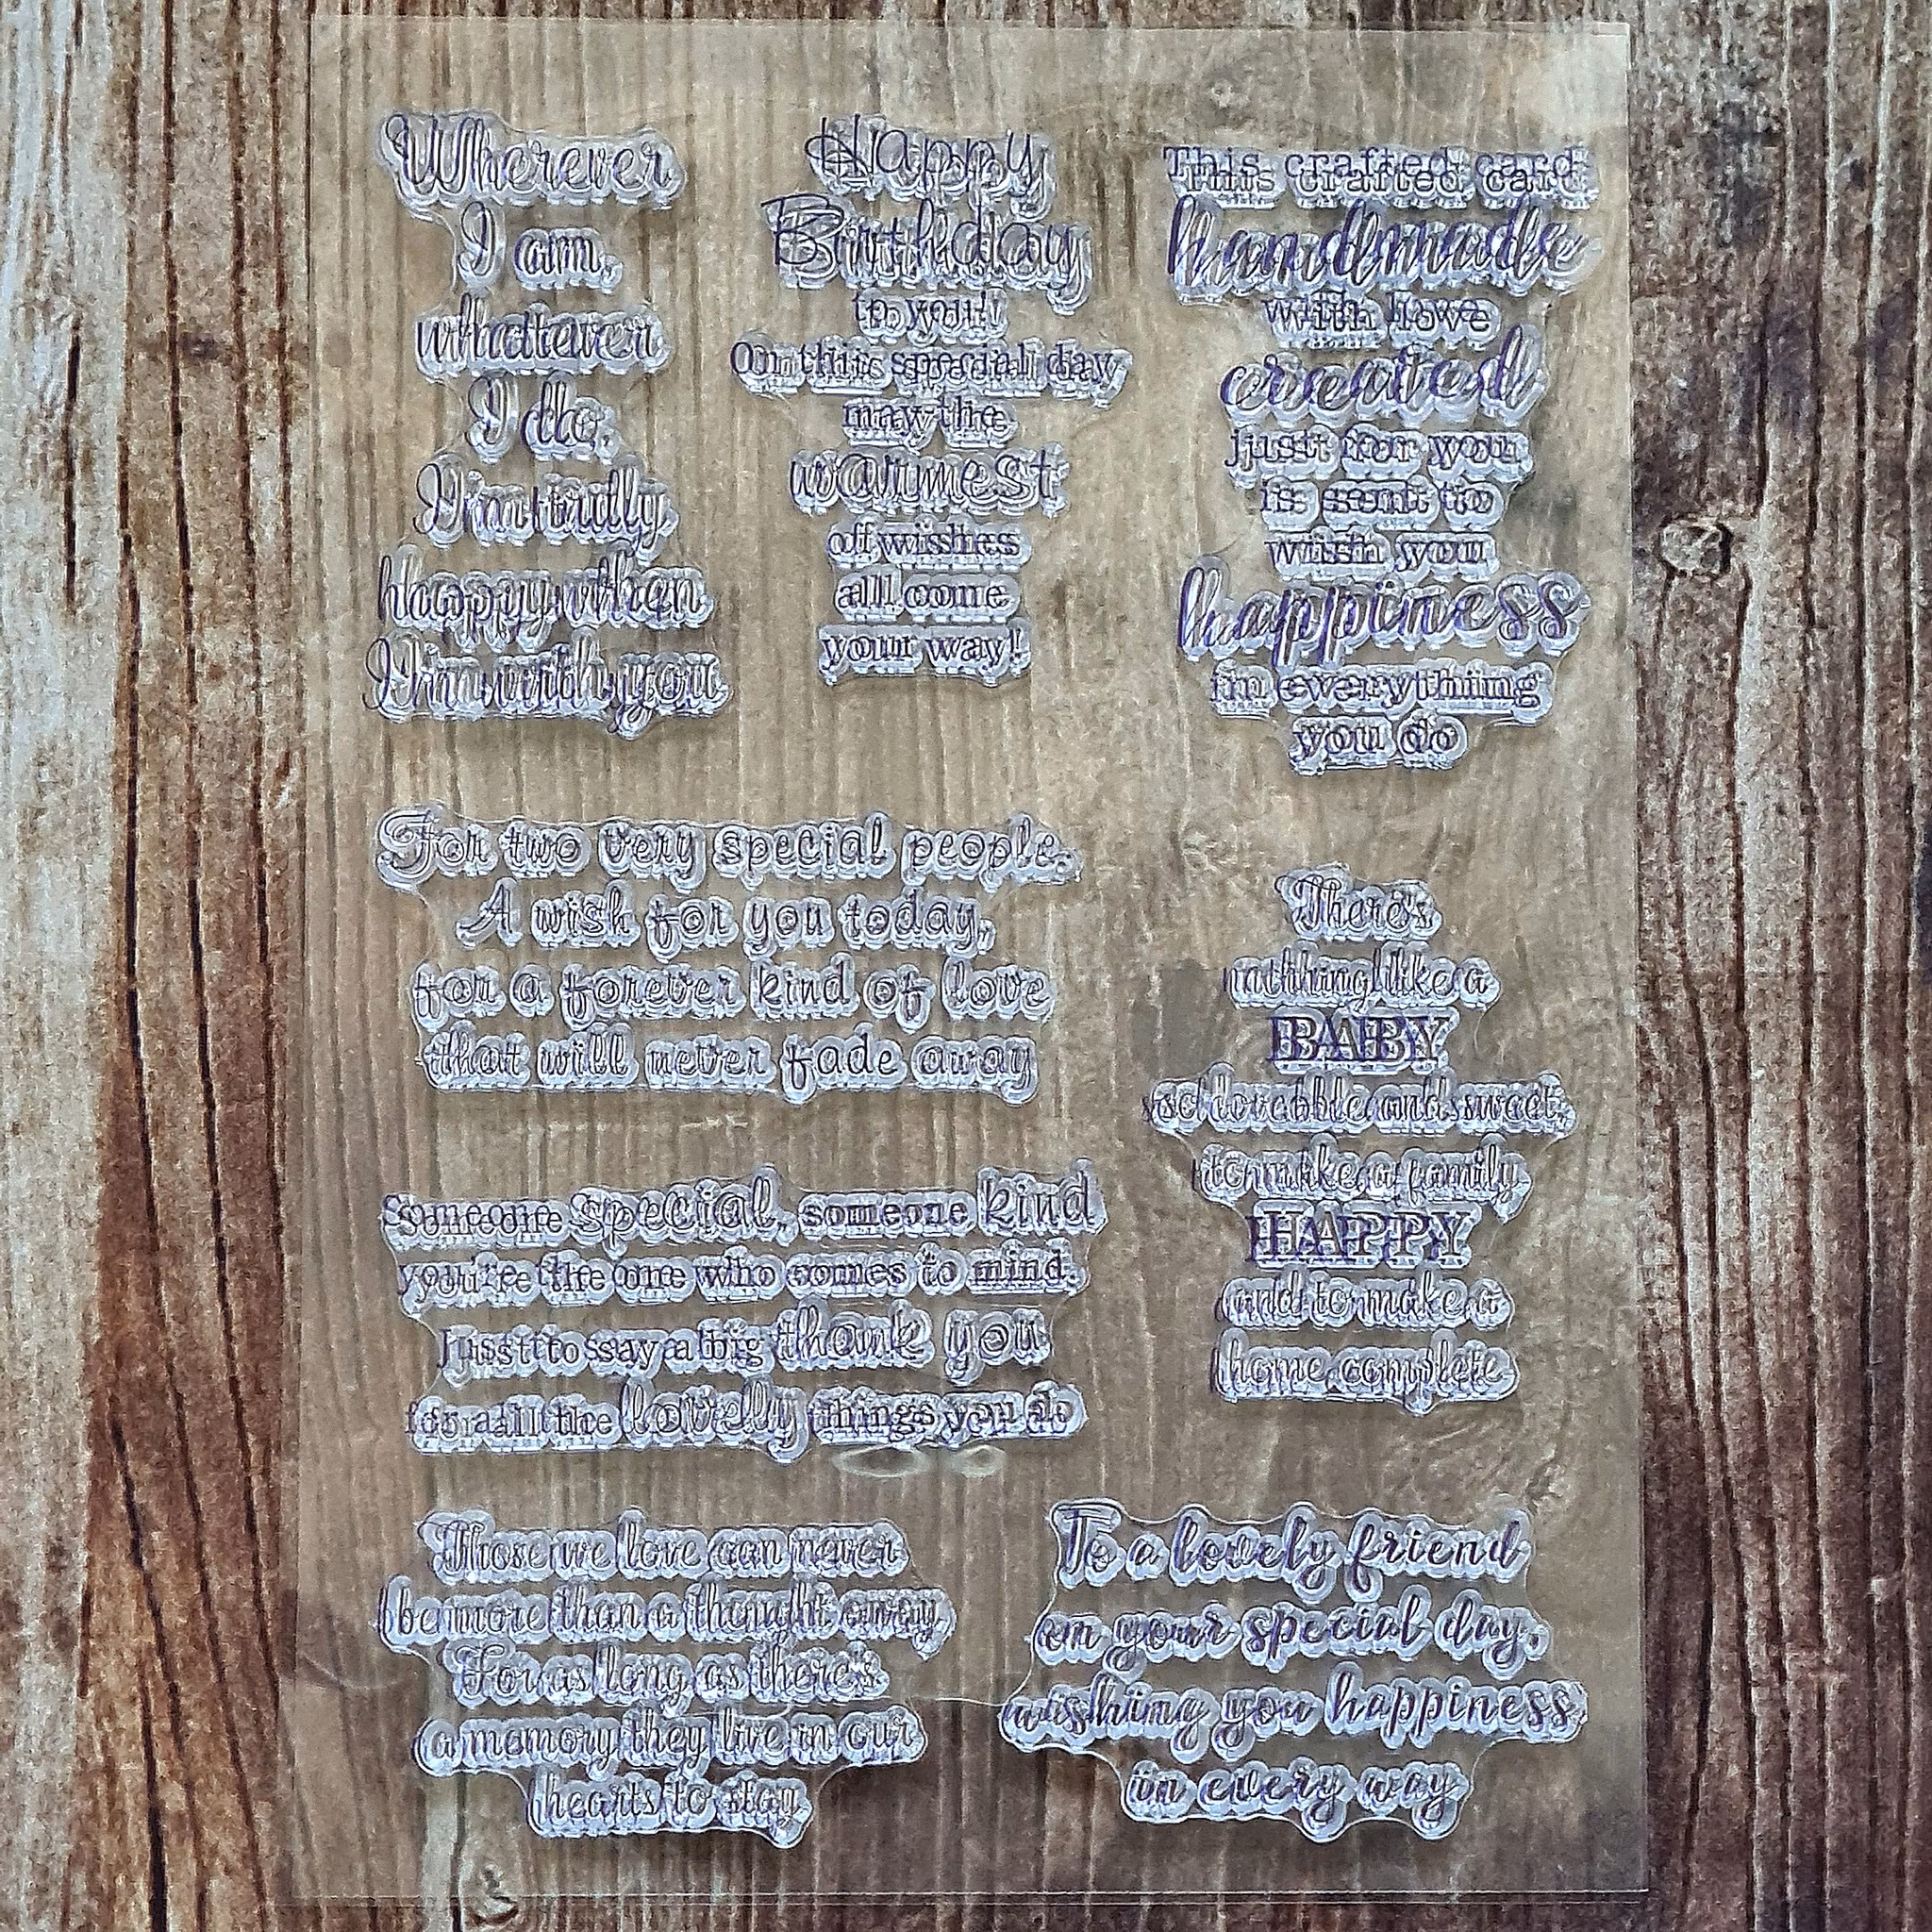 Wherever
I am,
whatever
I do,
I'm truly
happy when
I'm with you
Happy
Birthday
to you!
On this special day
may the
warmest
of wishes
all come
your way!
This crafted card
handmade
with love
created
just for you
is sent to
wish you
happiness
in everything
you do
For two very special people.
A wish for you today,
for a forever kind of love
that will never fade away
There's
nothing like a
BABY
so loveable and sweet,
to make a family
HAPPY
and to make a
home complete
Someone special, someone kind
you're the one who comes to mind.
Just to say a big thank you
for all the lovely things you do
Those we love can never
be more than a thought away,
For as long as there's
a memory they live in our
hearts to stay
To a lovely friend
on your special day,
wishing you happiness
in every way